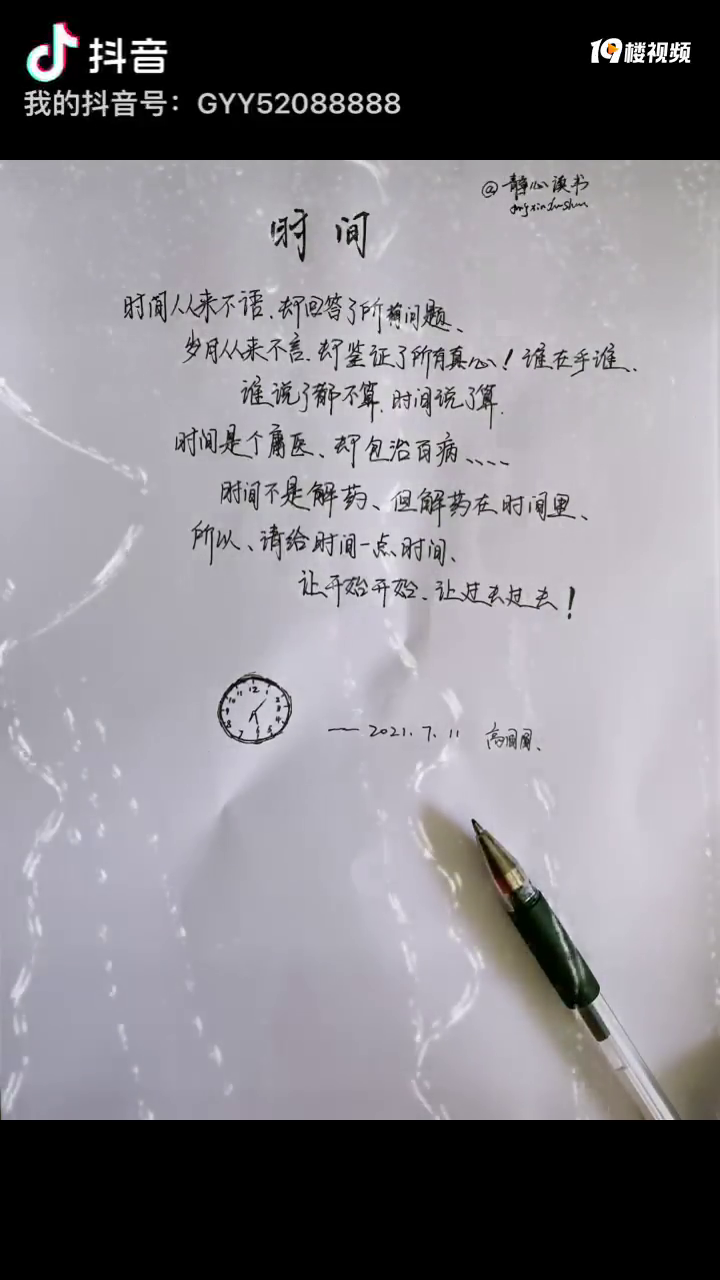 抖音
19楼视频
我的抖音号：GYY52088888
@静心读书
jingxindushu
时间
时间从来不语、却回答了所有问题、
岁月从来不言、却鉴证了所有真心！谁在乎谁、
谁说了都不算、时间说了算、
时间是个庸医、却包治百病、、、、
时间不是解药、但解药在时间里、
所以、请给时间一点时间、
让开始开始、让过去过去！
12
1
2
3
4
5
6
7
8
9
10
11
——2021.7.11 高圆圆、